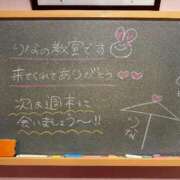 りなの教室です
来てくれてありがとう♡
次は週末に
会いましょう〜!!
りな